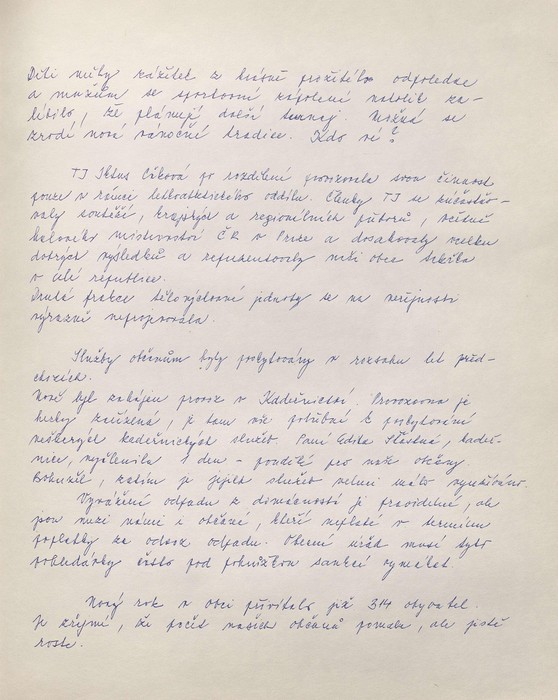 Děti měly zážitek z krásně prožitého odpoledne
a mužům se sportovní zápolení natolik za-
líbilo, že plánují další turnaj. Možná se
zrodí nová vánoční tradice. Kdo ví?
TJ Iktus po rozdělení provozovala svou činnost
pouze v rámci lehkoatletického oddílu. Členky TJ se zúčastňo-
valy soutěží, krajských a regionálních přeborů, včetně
halového mistrovství ČR v Praze a dosahovaly velmi
dobrých výsledků a reprezentovaly naši obec
v celé republice.
Druhá frakce tělovýchovné jednoty se na veřejnosti
výrazně neprojevovala.
Služby občanům byly poskytovány v rozsahu let před-
chozích.
Nově byl zahájen provoz v Kadeřnictví. Provozovna je
hezky zařízená, je tam vše potřebné k poskytování
veškerých kadeřnických služeb. Paní Edita Šťastná, kadeř-
nice, vyčlenila 1 den - pondělí pro naše občany.
Bohužel, zatím je jejich služeb velmi málo využíváno.
Vyvážení odpadu z domácností je pravidelné, ale
jsou mezi námi i občané, kteří neplatí v termínu
poplatky za odvoz odpadu. Obecní úřad musí tyto
pohledávky často pod pohrůžkou sankcí vymáhat.
Nový rok v obci přivítalo již 344 obyvatel.
Je zřejmé, že počet našich občanů pomalu, ale jistě
roste.